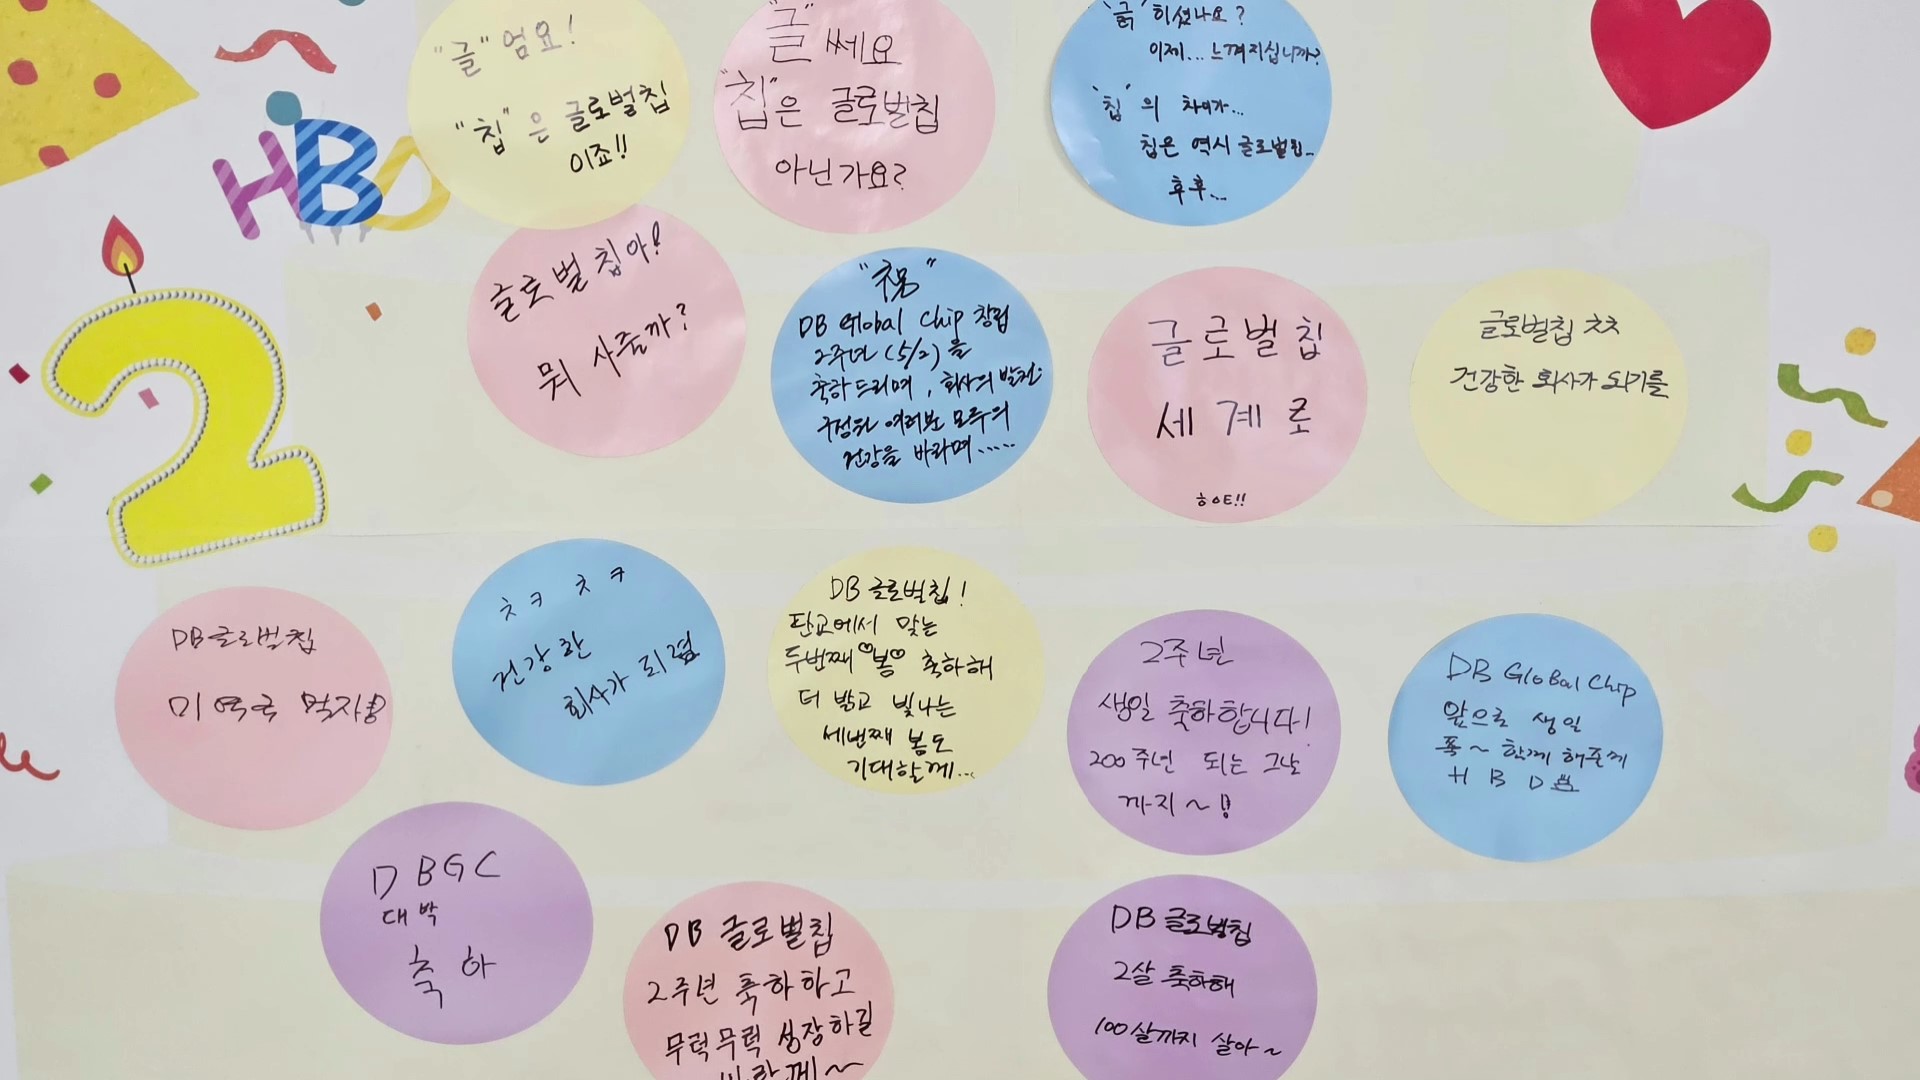 HBD
"글" 엄요!
"칩"은 글로벌칩
이죠!!
"글"쎄요
"칩"은 글로벌칩
아닌가요?
"긁"히셨나요?
이제... 느껴지십니까?
"칩"의 차이가...
칩은 역시 글로벌칩...
후후...
글로벌칩아!
뭐 사줄까?
"祝"
DB Global Chip 창립
2주년 (5/2)을
축하드리며, 회사의 발전
구성원 여러분 모두의
건강을 바라며.....
글로벌칩
세계로
ㅎㅇㅌ!!
글로벌칩 ㅊㅊ
건강한 회사가 되기를
2
DB글로벌칩
미역국 먹자
ㅊㅋ ㅊㅋ
건강한
회사가 되렴
DB 글로벌칩!
판교에서 맞는
두번째 봄 축하해
더 밝고 빛나는
세번째 봄도
기대할게...
2주년
생일 축하합니다!
200주년 되는 그날
까지~!
DB Global Chip
앞으로 생일
쭉~ 함께 해줄게
H B D
DBGC
대박
축하
DB 글로벌칩
2주년 축하하고
무럭무럭 성장하길
바랄께~
DB 글로벌칩
2살 축하해
100살까지 살아~